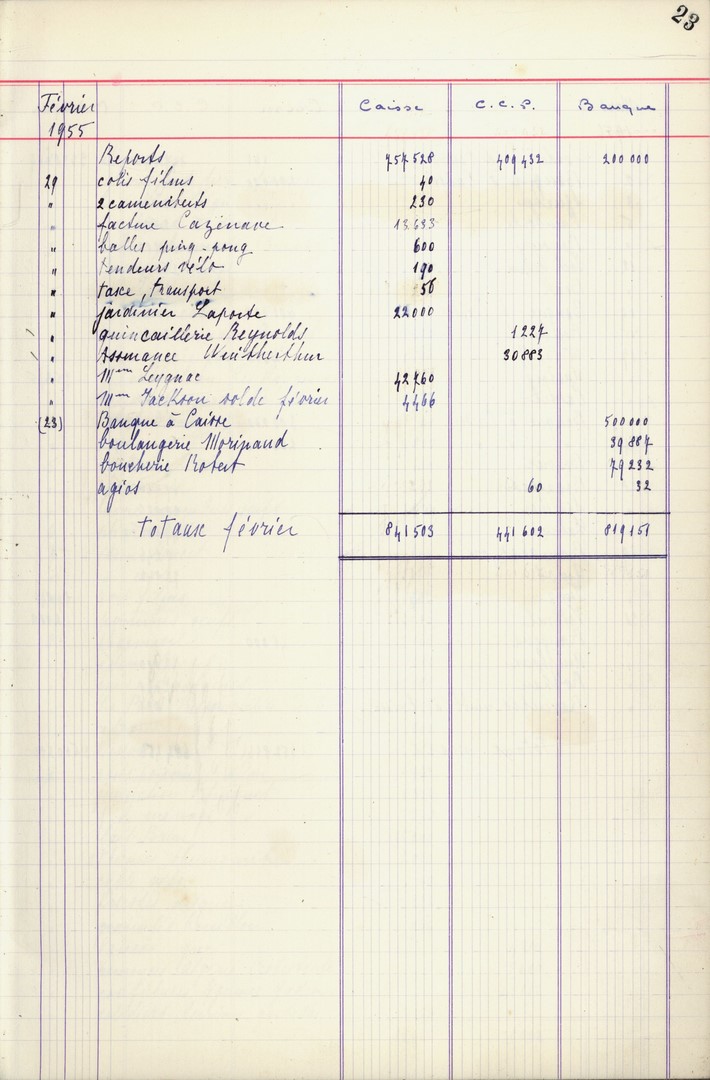 23
Février Caisse C.C.P. Banque
1955
Reports 757528 409432 200000
29 colis films 40
" 2 camemberts 230
" facture Cazenave 13.633
" balles ping-pong 600
" tendeurs vélo 190
" taxe, transport 56
" jardinier Laporte 22000
" quincaillerie Reynolds 1227
" Assurance Wintherthur 30883
" Mme Leygnac 42760
" Mme Jackson solde février 4466
(23) Banque à Caisse 500000
boulangerie Moripaud 39887
boucherie Robert 79232
agios 60 32
totaux février 841503 441602 819151